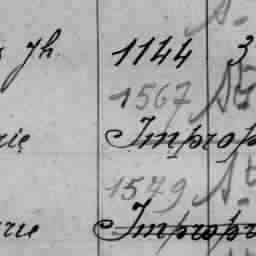 Jh 1144 3
1567 St
rie Improp
1579 St
rie Impropr